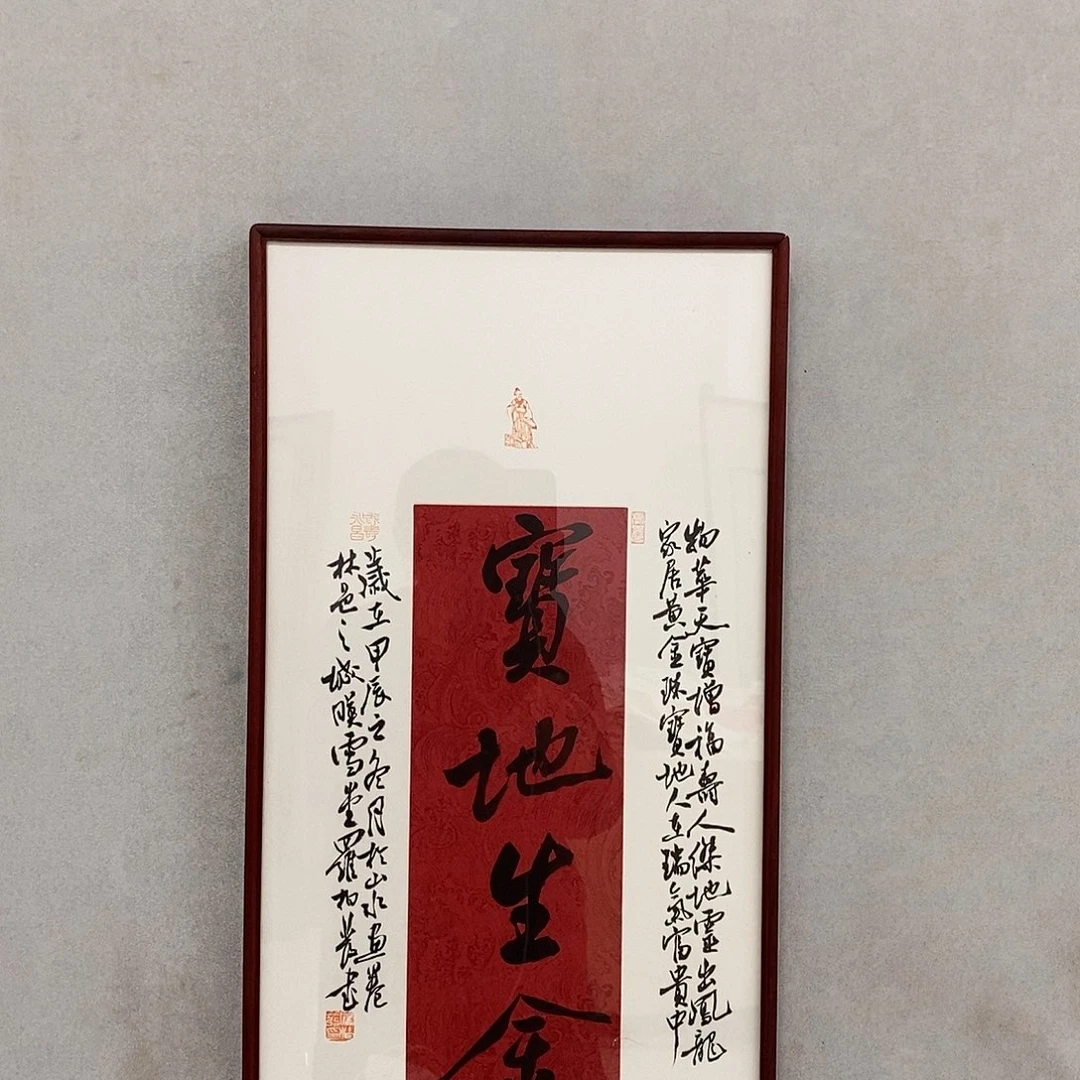 物華天寶增福壽人傑地靈出鳳龍
家居黃金珠寶地人在瑞氣富貴中
寶地生金
歲在甲辰之冬月於山水畫卷
林邑之城暎雪堂羅柏書